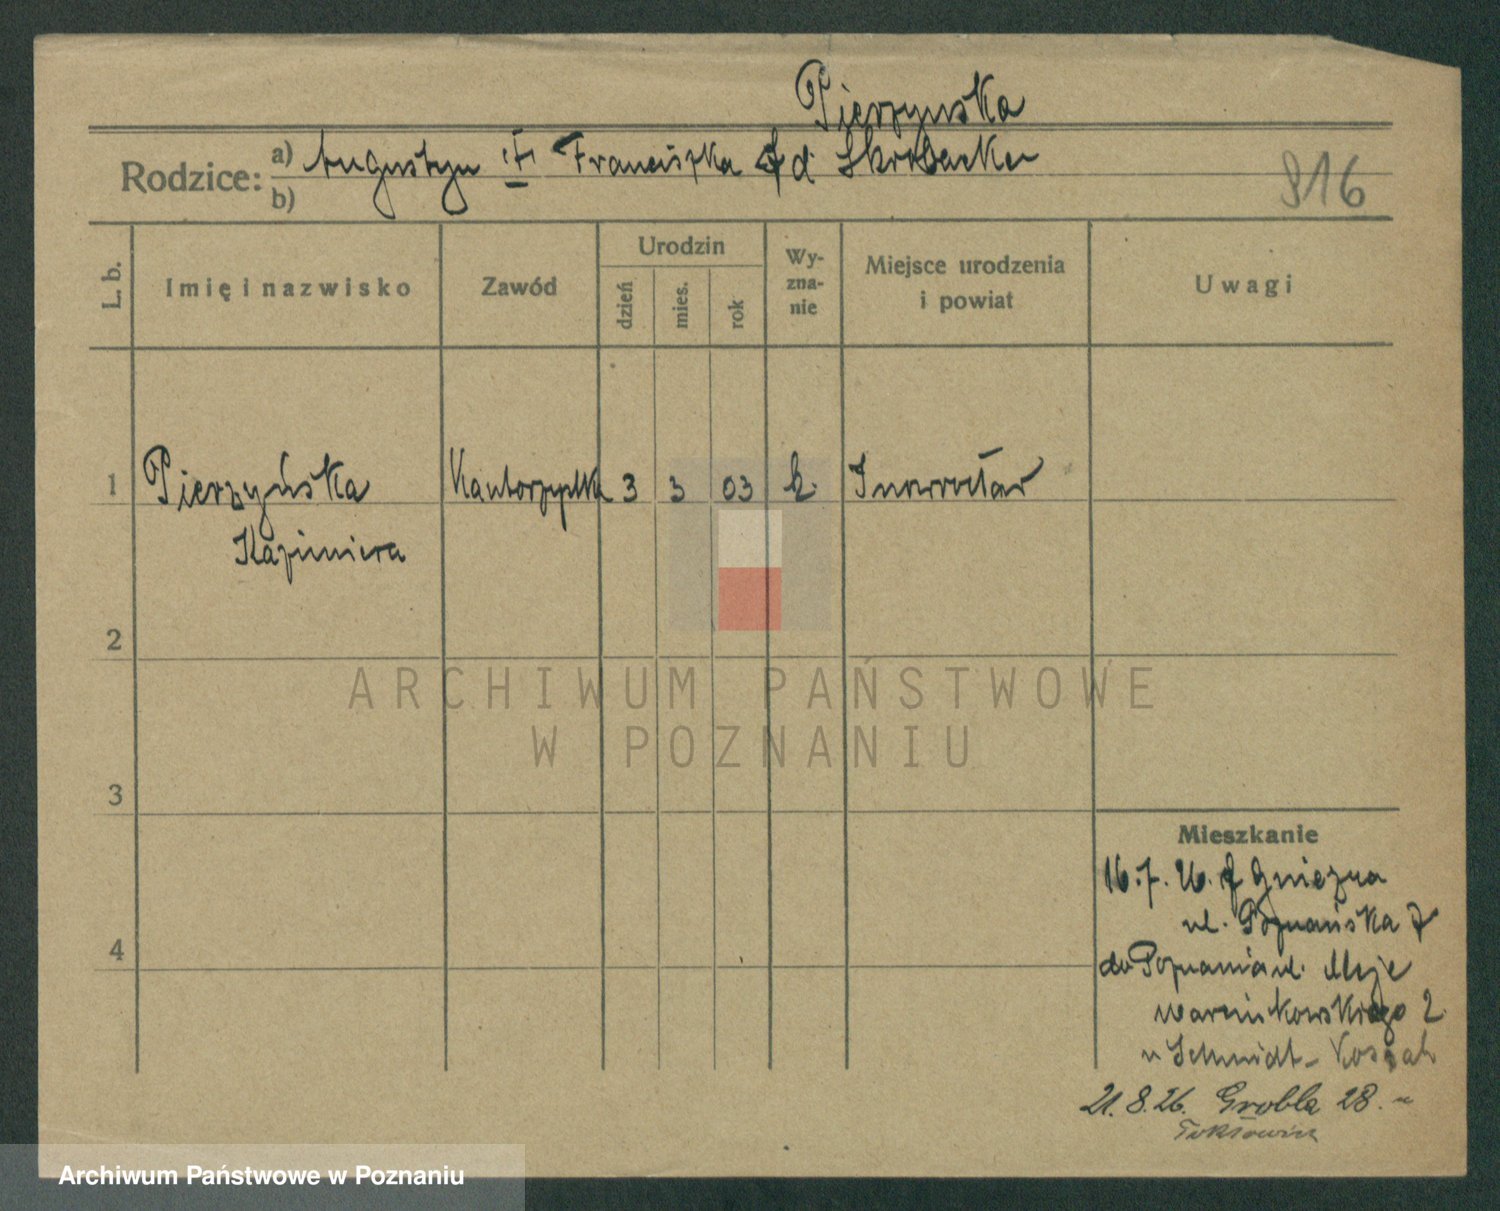 Pierzyńska
Rodzice: a) Augustyn Franciszka d. Skrobacka
b)
816
L. b. Imię i nazwisko Zawód Urodzin dzień mies. rok Wy-zna-nie Miejsce urodzenia i powiat Uwagi
1 Pierzyńska Kantorzystka 3 3 03 k. Inowrocław
Kazimiera
2
ARCHIWUM PAŃSTWOWE
W POZNANIU
3
Mieszkanie
16. 7. 26. Gniezna
ul. Poznańska 7
4
do Poznania ul.
Marcinkowskiego 2
u Schmidt
21. 8. 26. Grobla 28.
Archiwum Państwowe w Poznaniu